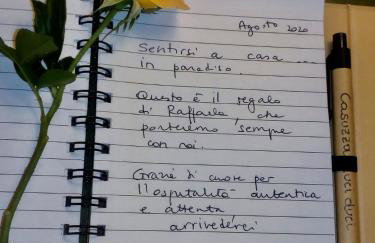 Agosto 2020
Sentirsi a casa ...
in paradiso.
Questo è il regalo
di Raffaela, che
porteremo sempre
con noi.
Grazie di cuore per
l'ospitalità autentica
e attenta,
arrivederci
Casuzza duci duci